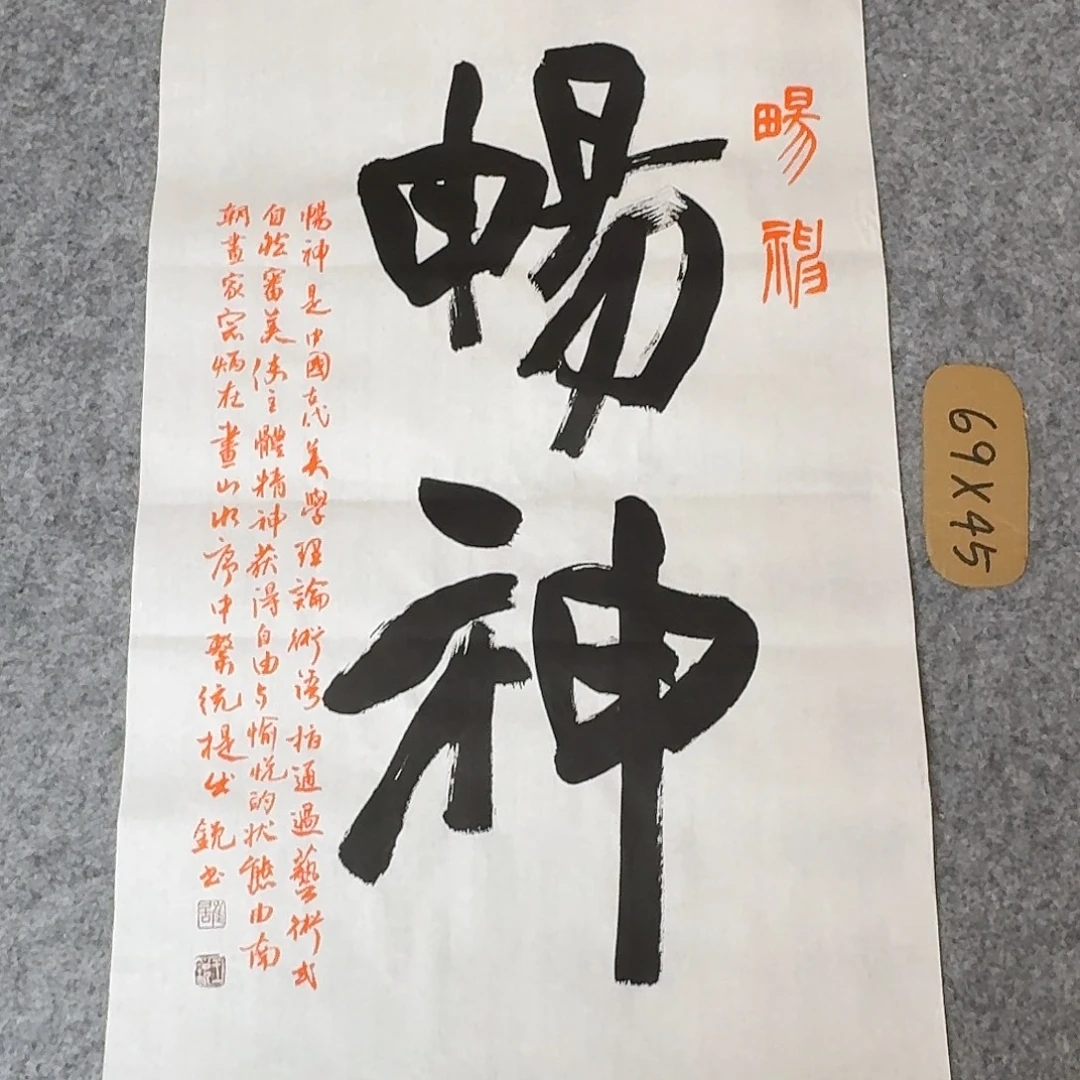 暢神
暢神
暢神是中國古代美學理論術語指通過藝術或
自然審美使主體精神获得自由与愉悦的状態由南
朝畫家宗炳在畫山水序中系统提出
銳书
69X45